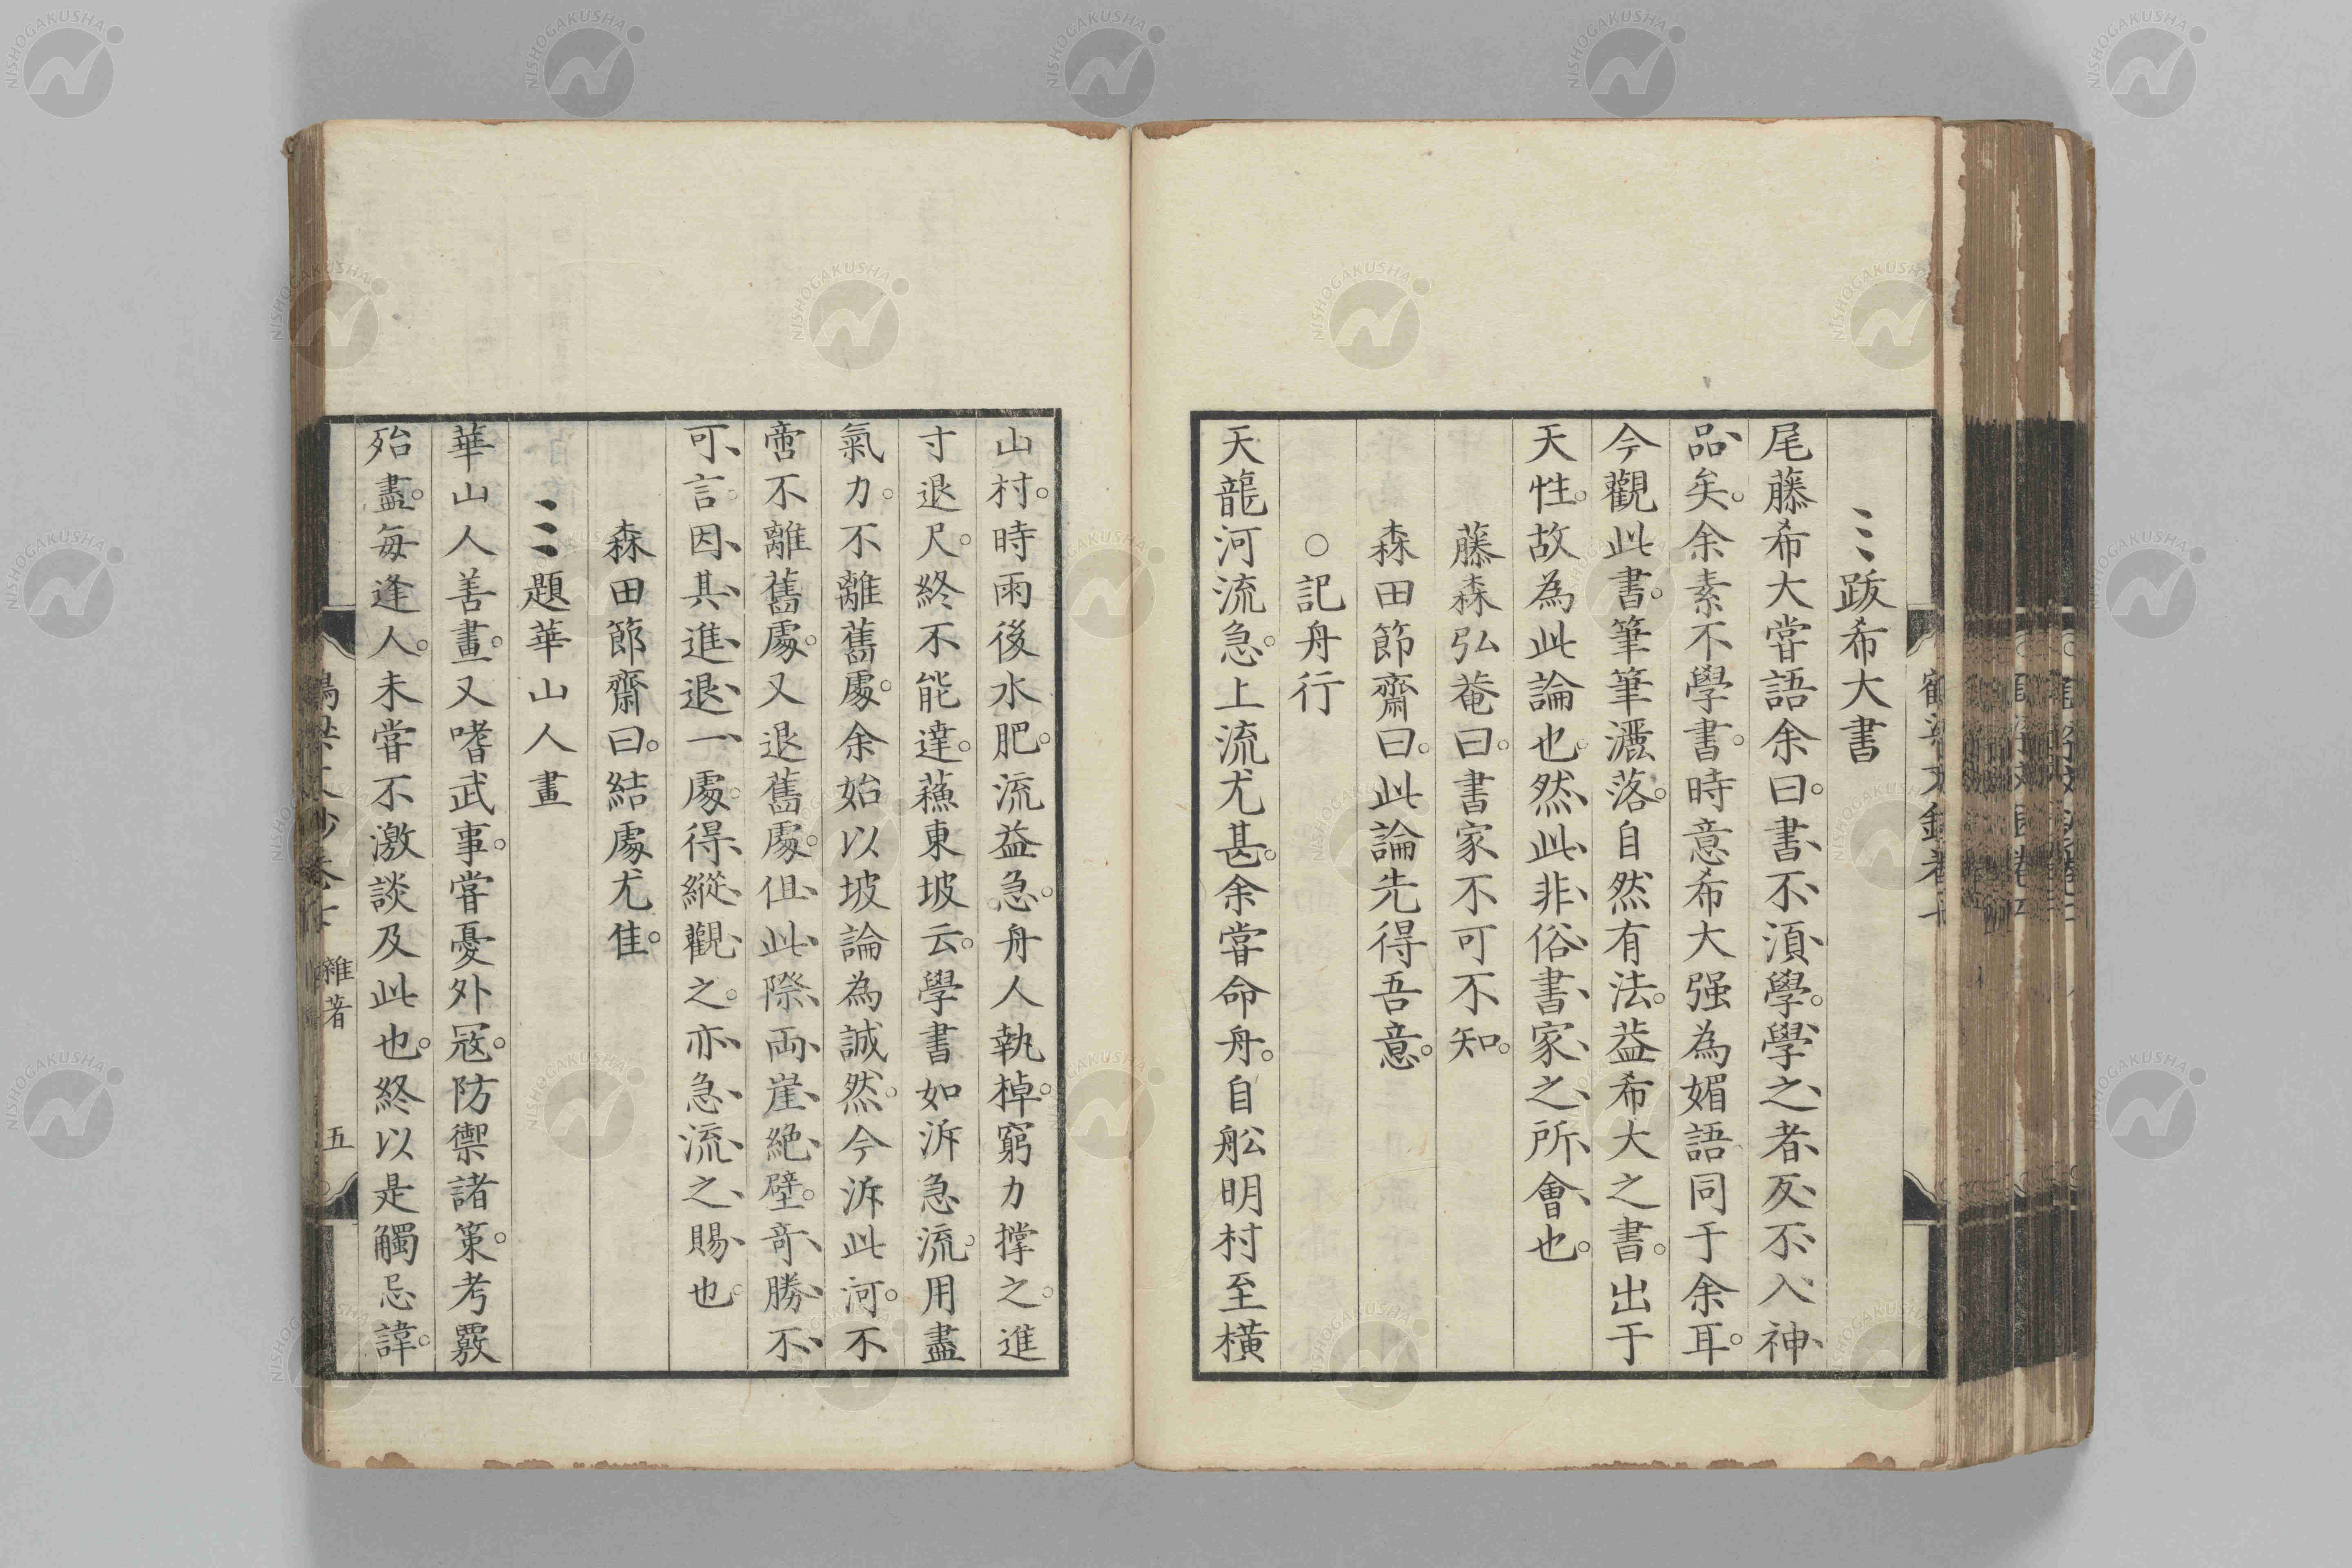 跋希大書
尾藤希大嘗語余曰。書不須學。學之者反不入神
品矣。余素不學書。時意希大强為媚語同于余耳。
今觀此書。筆筆灑落。自然有法。益希大之書。出于
天性。故為此論也。然此非俗書家之所會也。
藤森弘菴曰。書家不可不知。
森田節齋曰。此論先得吾意。
○記舟行
天龍河流急。上流尤甚。余嘗命舟。自舩明村至橫
山村。時雨後水肥。流益急。舟人執棹。窮力撑之。進
寸退尺。終不能達。蘓東坡云。學書如泝急流。用盡
氣力。不離舊處。余始以坡論為誠然。今泝此河。不
啻不離舊處。又退舊處。但此際兩崖絶壁。奇勝不
可言。因其進退一處。得縱觀之。亦急流之賜也。
森田節齋曰。結處尤佳。
題華山人畫
華山人善畫。又嗜武事。嘗憂外冦。防禦諸策。考覈
殆盡。每逢人。未嘗不激談及此也。終以是觸忌諱。
雜著
五
NISHOGAKUSHA